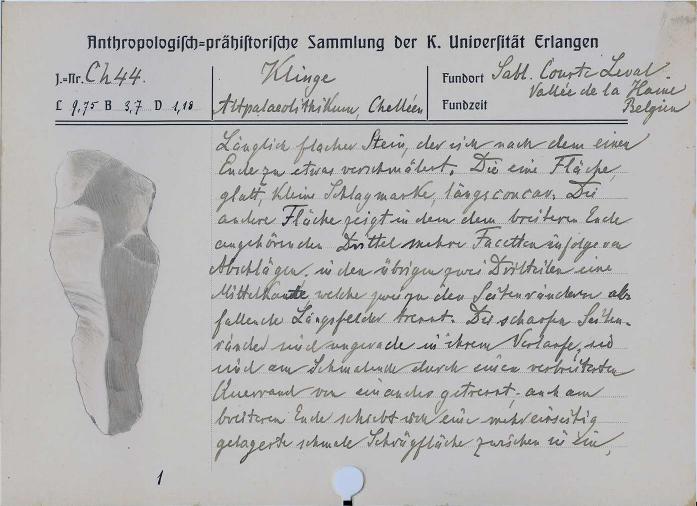 Anthropologisch=prähistorische Sammlung der K. Universität Erlangen
J.=Nr. Ch 44.
L 9,75 B 3,7 D 1,18
Klinge
Altpalaeolithikum, Chelléen
Fundort Sabl. Courte Leval
Vallée de la Haine
Belgien
Fundzeit
Länglich flacher Stein, der sich nach dem einen
Ende zu etwas verschmälert. Die eine Fläche,
glatt, kleine Schlagmarke, längsconcav. Die
andere Fläche zeigt in dem dem breiteren Ende
angehörenden Drittel mehre Facetten infolge von
Abschlägen, in den übrigen zwei Dritteilen eine
Mittelkante welche zwei zu den Seitenrändern ab=
fallende Längsfelder trennt. Die scharfen Seiten=
ränder sind ungerade in ihrem Verlaufe, und
sind am Schmalende durch einen verbreiterten
Querrand von einander getrennt, auch am
breiteren Ende schiebt sich eine mehr einseitig
gelagerte schmale Schrägfläche zwischen sie ein,
1